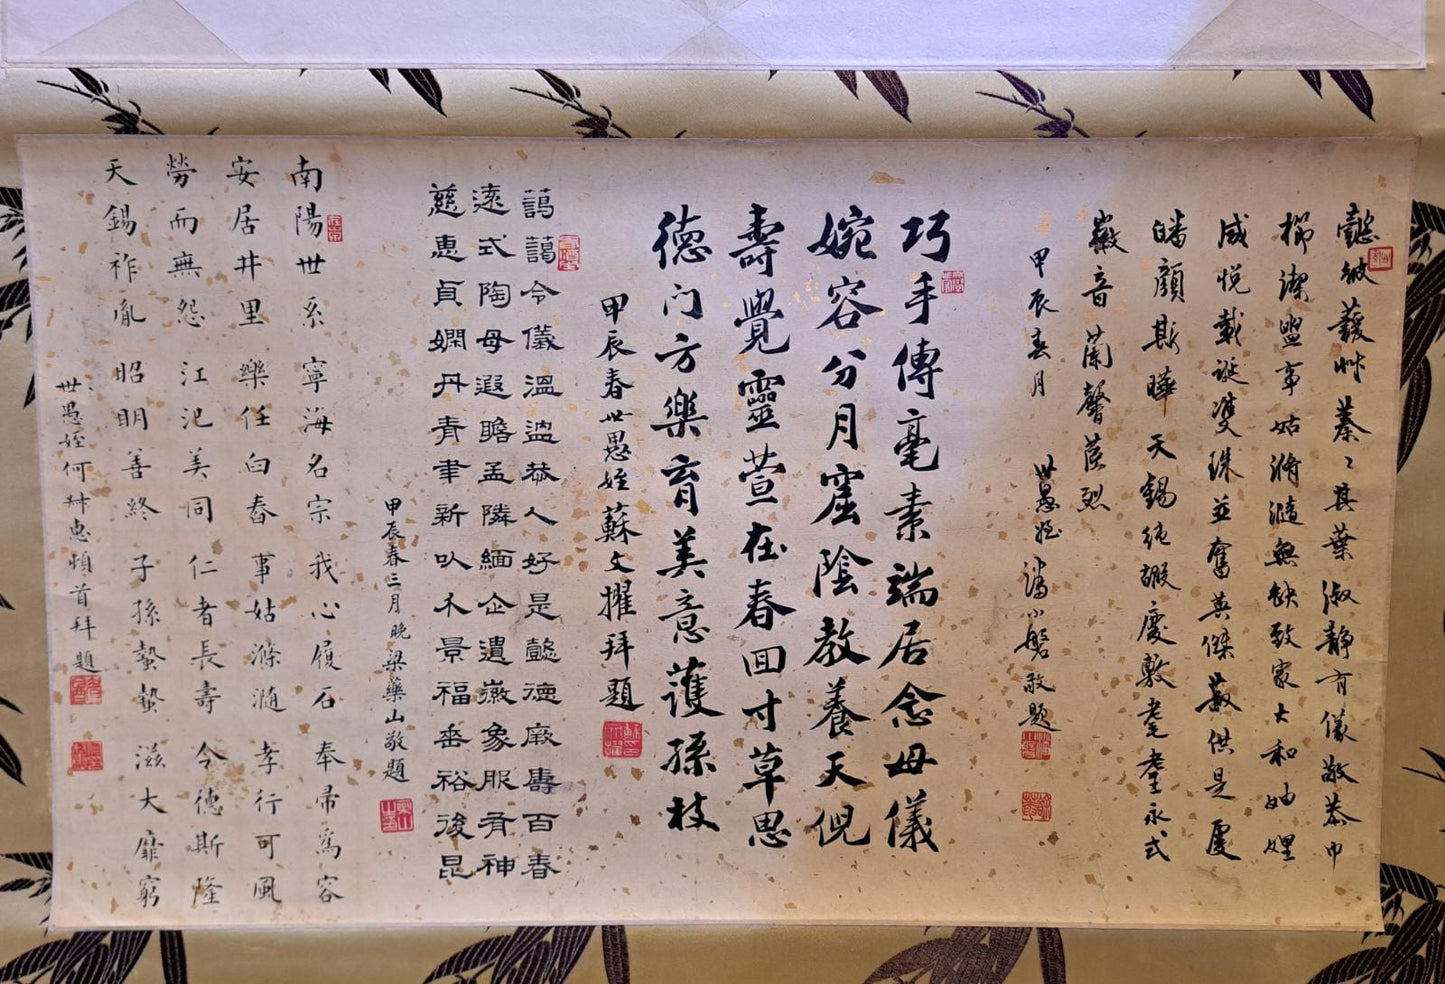 懿彼蘐艸蓁々其葉淑靜有儀敬恭巾
櫛潔盥事姑滫瀡無缺致家大和妯娌
咸悅載誕雙珠並奮英傑菽供是慶
皤顏斯曄天錫純嘏慶敷耄耋永式
徽音蘭馨荗烈
甲辰春月
世愚姪潘小磐敬題
巧手傳毫素端居念母儀
婉容分月窟陰教養天倪
壽覺靈萱在春回寸草思
德门方樂育美意護孫枝
甲辰春世愚姪蘇文擢拜題
藹藹令儀溫溫恭人好是懿德厥壽百春
遠式陶母遐瞻孟隣緬企遺徽象服有神
慈惠貞嫻丹青聿新以介景福垂裕後昆
甲辰春三月晚梁藥山敬題
南陽世系寧海名宗我心履石奉帚為容
安居井里樂任臼舂事姑滫瀡孝行可風
勞而無怨江汜美同仁者長壽今德斯隆
天錫祚胤昭明善終子孫蟄蟄滋大靡窮
世愚姪何叔惠頓首拜題